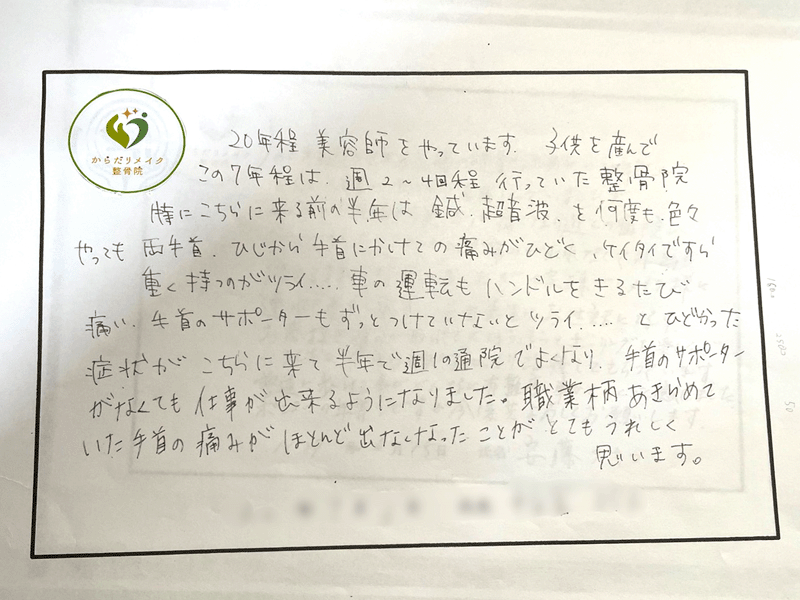 からだリメイク
整骨院
20年程 美容師をやっています。子供を産んで
この7年程は、週2〜4回程 行っていた整骨院
特にこちらに来る前の半年は 鍼、超音波、を何度も色々
やっても 両手首、ひじから手首にかけての痛みがひどく、ケイタイですら
重く持つのがツライ..... 車の運転もハンドルをきるたび
痛い、手首のサポーターもずっとつけていないとツライ..... とひどかった
症状が こちらに来て 半年で週1の通院でよくなり、手首のサポーター
がなくても 仕事が出来るようになりました。職業柄 あきらめて
いた手首の痛みが ほとんど出なくなったことが とてもうれしく
思います。